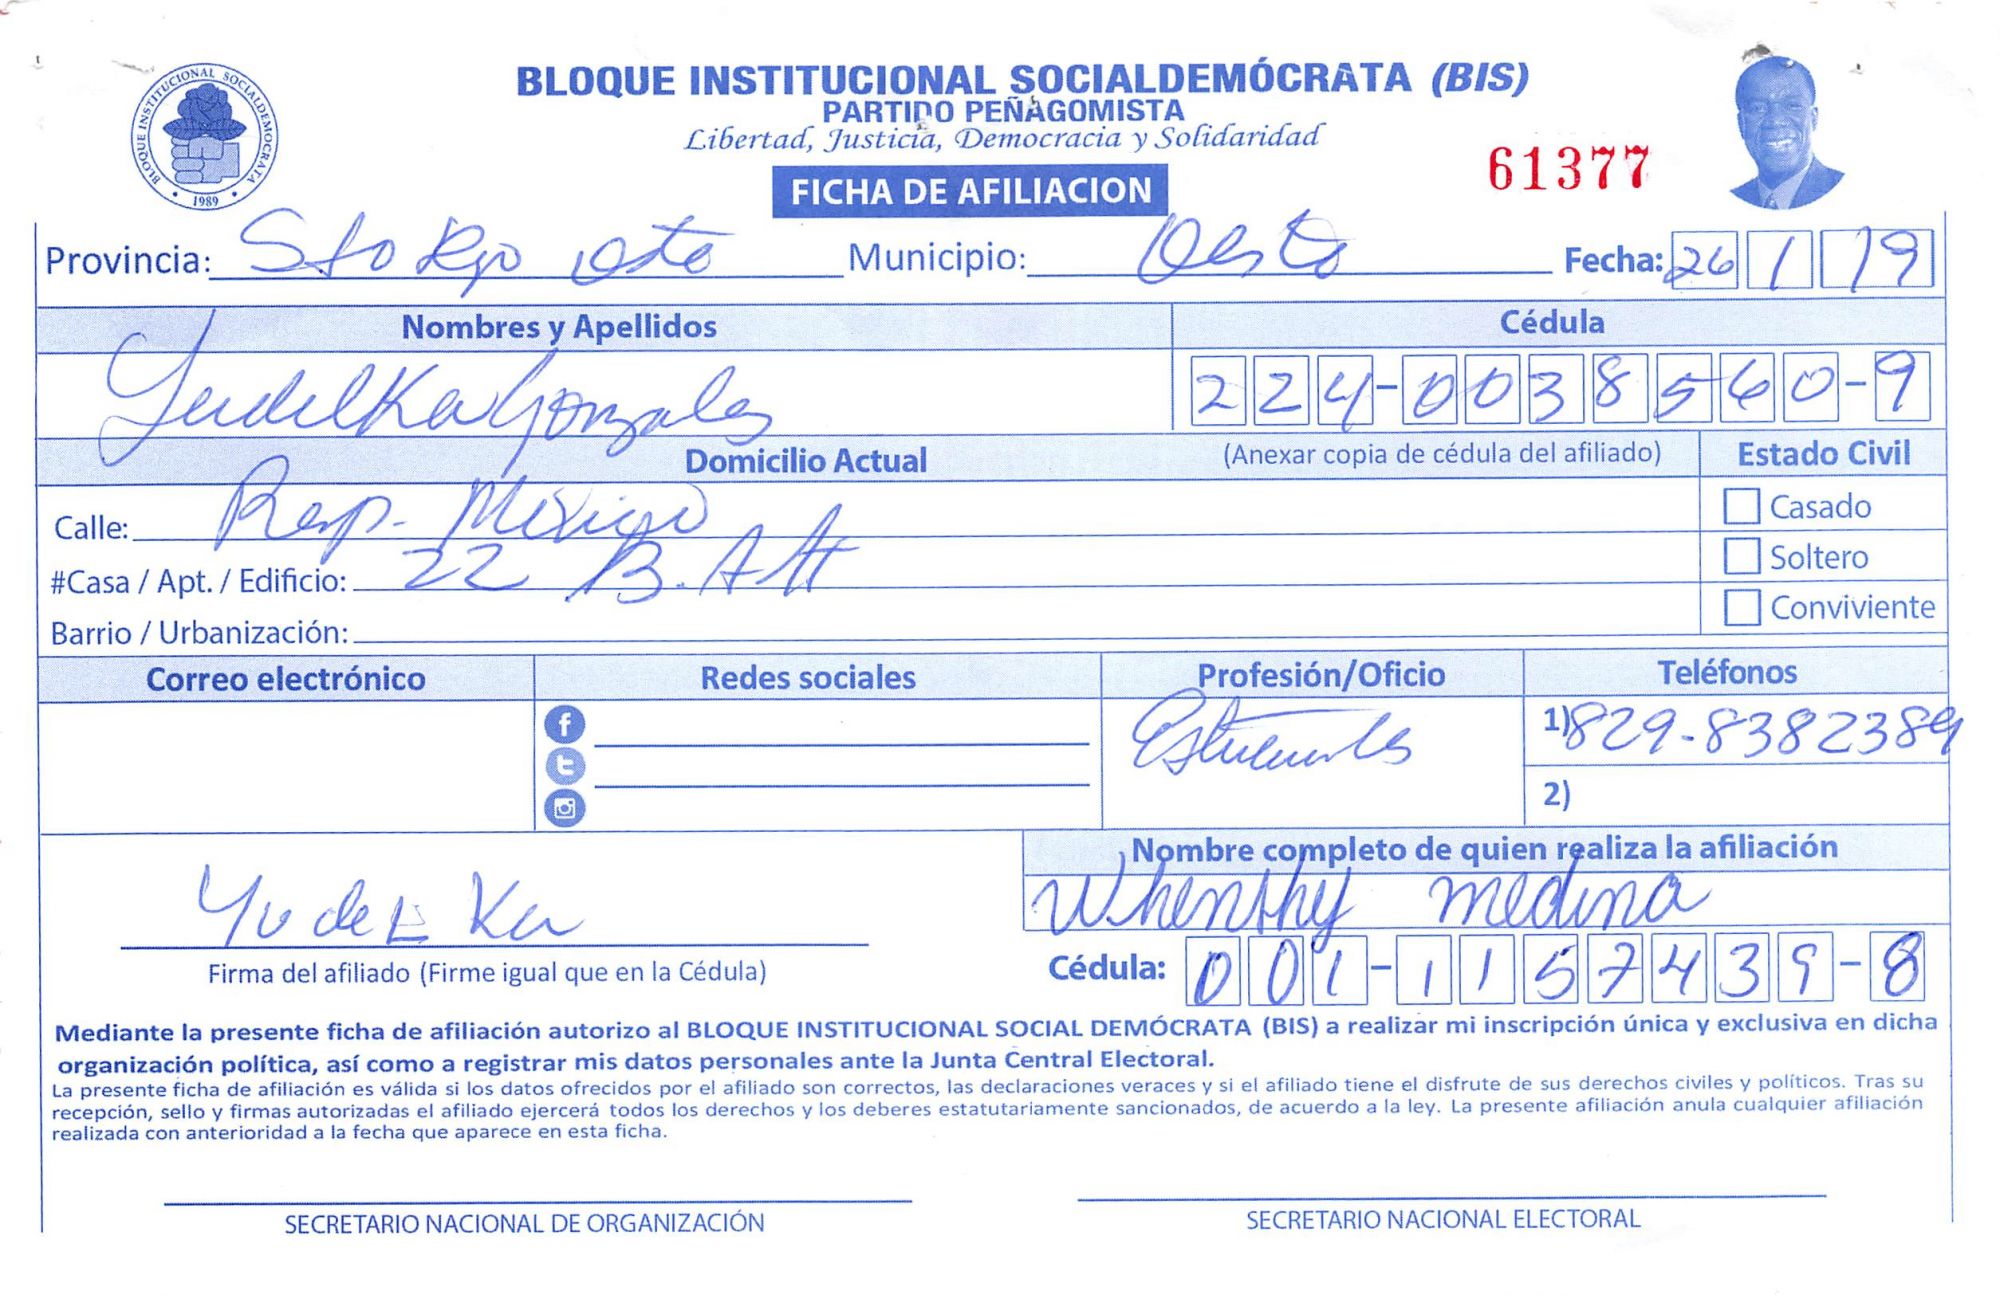 BLOQUE INSTITUCIONAL SOCIALDEMÓCRATA (BIS)
PARTIDO PEÑAGOMISTA
Libertad, Justicia, Democracia y Solidaridad
BLOQUE INSTITUCIONAL SOCIALDEMOCRATA
1989
61377
FICHA DE AFILIACION
Provincia: Sto Dgo Municipio: Fecha: 26 / 19
Nombres y Apellidos Cédula
Yudelka Gonzales 224-0038560-9
Domicilio Actual (Anexar copia de cédula del afiliado) Estado Civil
Calle: Rep. Mexico Casado
#Casa / Apt. / Edificio: 22 B. Soltero
Barrio / Urbanización: Conviviente
Correo electrónico Redes sociales Profesión/Oficio Teléfonos
1) 829-8382389
2)
Nombre completo de quien realiza la afiliación
Yudelka Whenshy medina
Firma del afiliado (Firme igual que en la Cédula) Cédula: 001-1157439-8
Mediante la presente ficha de afiliación autorizo al BLOQUE INSTITUCIONAL SOCIAL DEMÓCRATA (BIS) a realizar mi inscripción única y exclusiva en dicha
organización política, así como a registrar mis datos personales ante la Junta Central Electoral.
La presente ficha de afiliación es válida si los datos ofrecidos por el afiliado son correctos, las declaraciones veraces y si el afiliado tiene el disfrute de sus derechos civiles y políticos. Tras su
recepción, sello y firmas autorizadas el afiliado ejercerá todos los derechos y los deberes estatutariamente sancionados, de acuerdo a la ley. La presente afiliación anula cualquier afiliación
realizada con anterioridad a la fecha que aparece en esta ficha.
SECRETARIO NACIONAL DE ORGANIZACIÓN SECRETARIO NACIONAL ELECTORAL